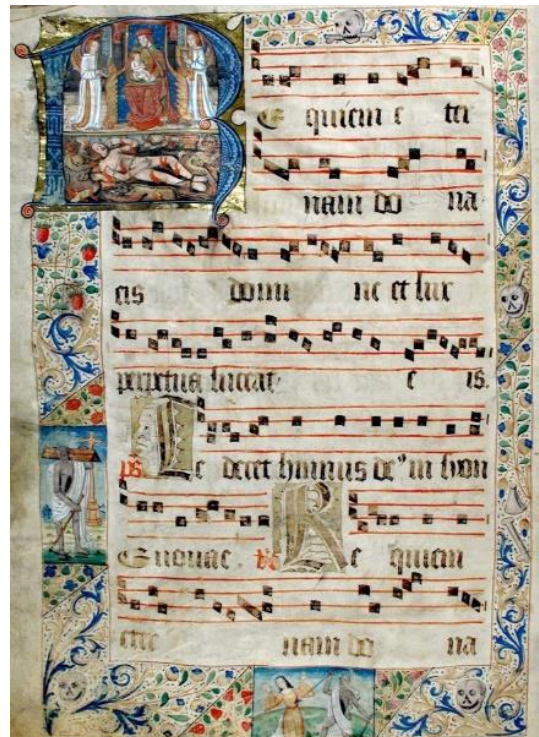 Requiem e ter
nam do na
eis domi ne et lux
perpetua luceat e is.
ps Te decet himnus de⁹ in syon
Euouae. Re quiem
eter nam do na